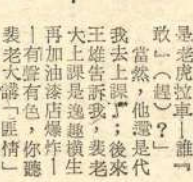 是老虎拉車—誰
敢」(趕)?」
當然,他還是代
我去上課了;後來
王雄告訴我,裴老
大上課是逸趣橫生
再加油漆店爆炸—
—有聲有色,你聽
裴老大講「匪情」